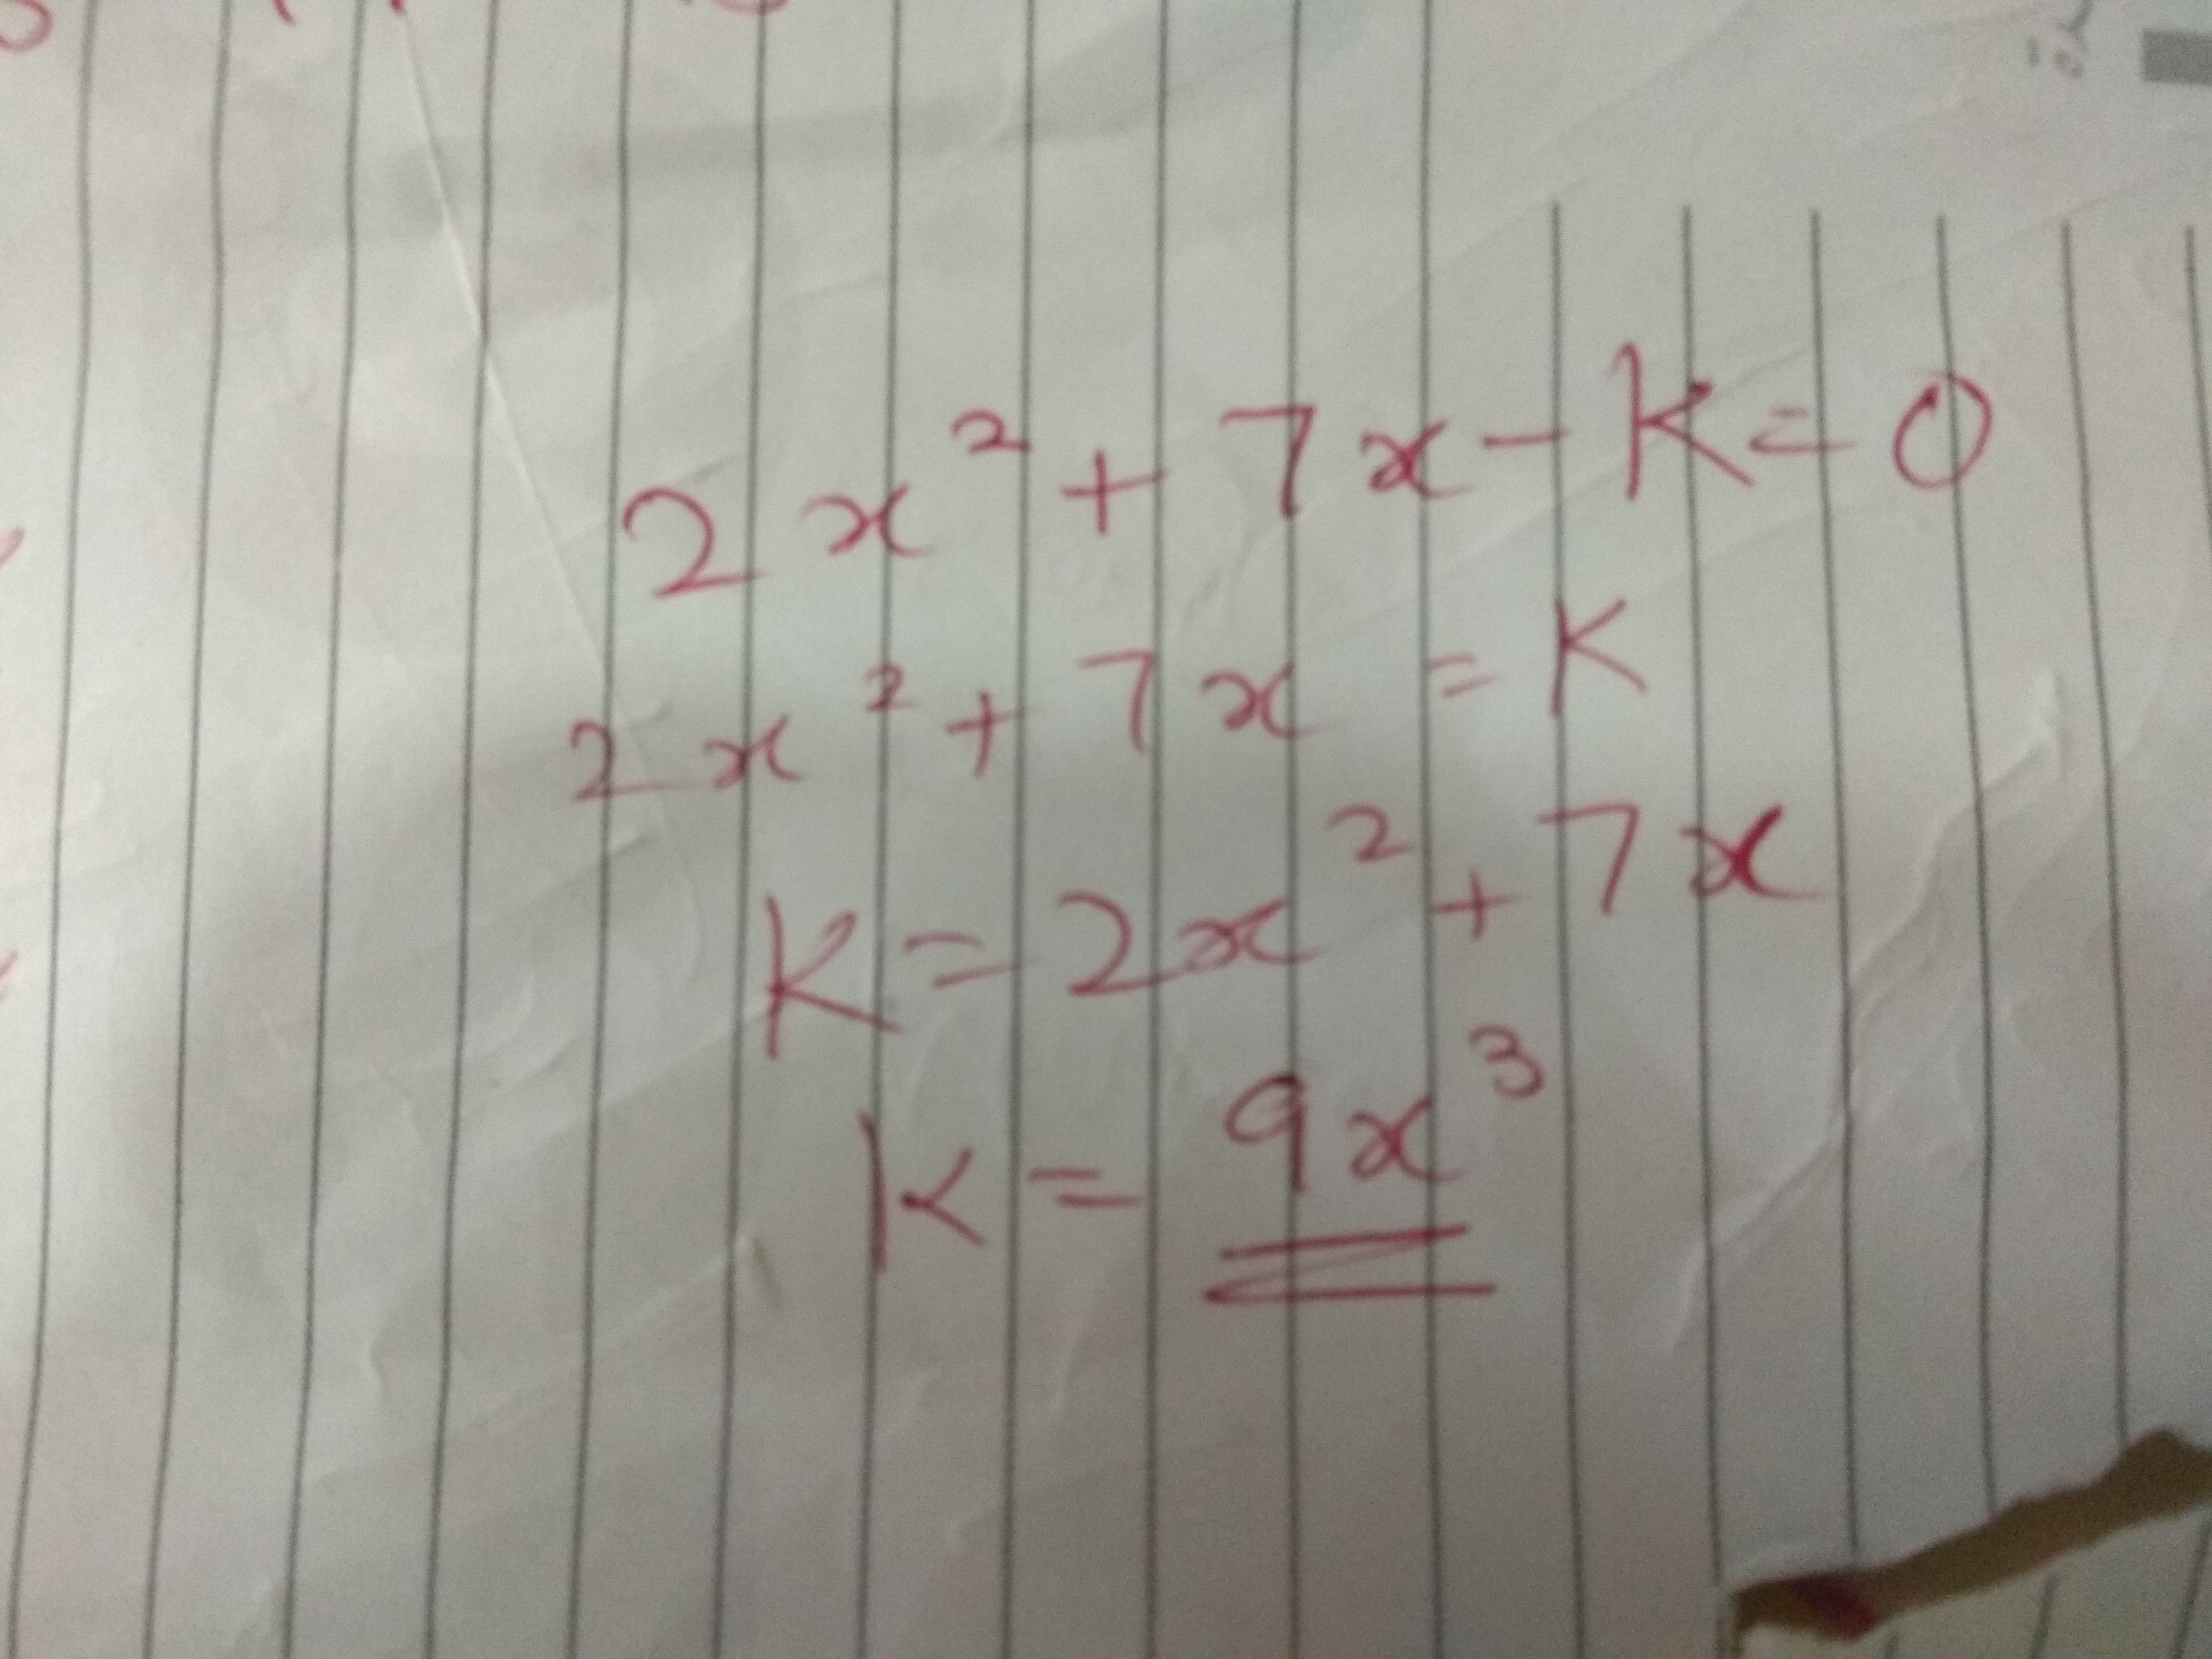 2x² + 7x - K = 0
2x² + 7x = K
K = 2x² + 7x
K = 9x³